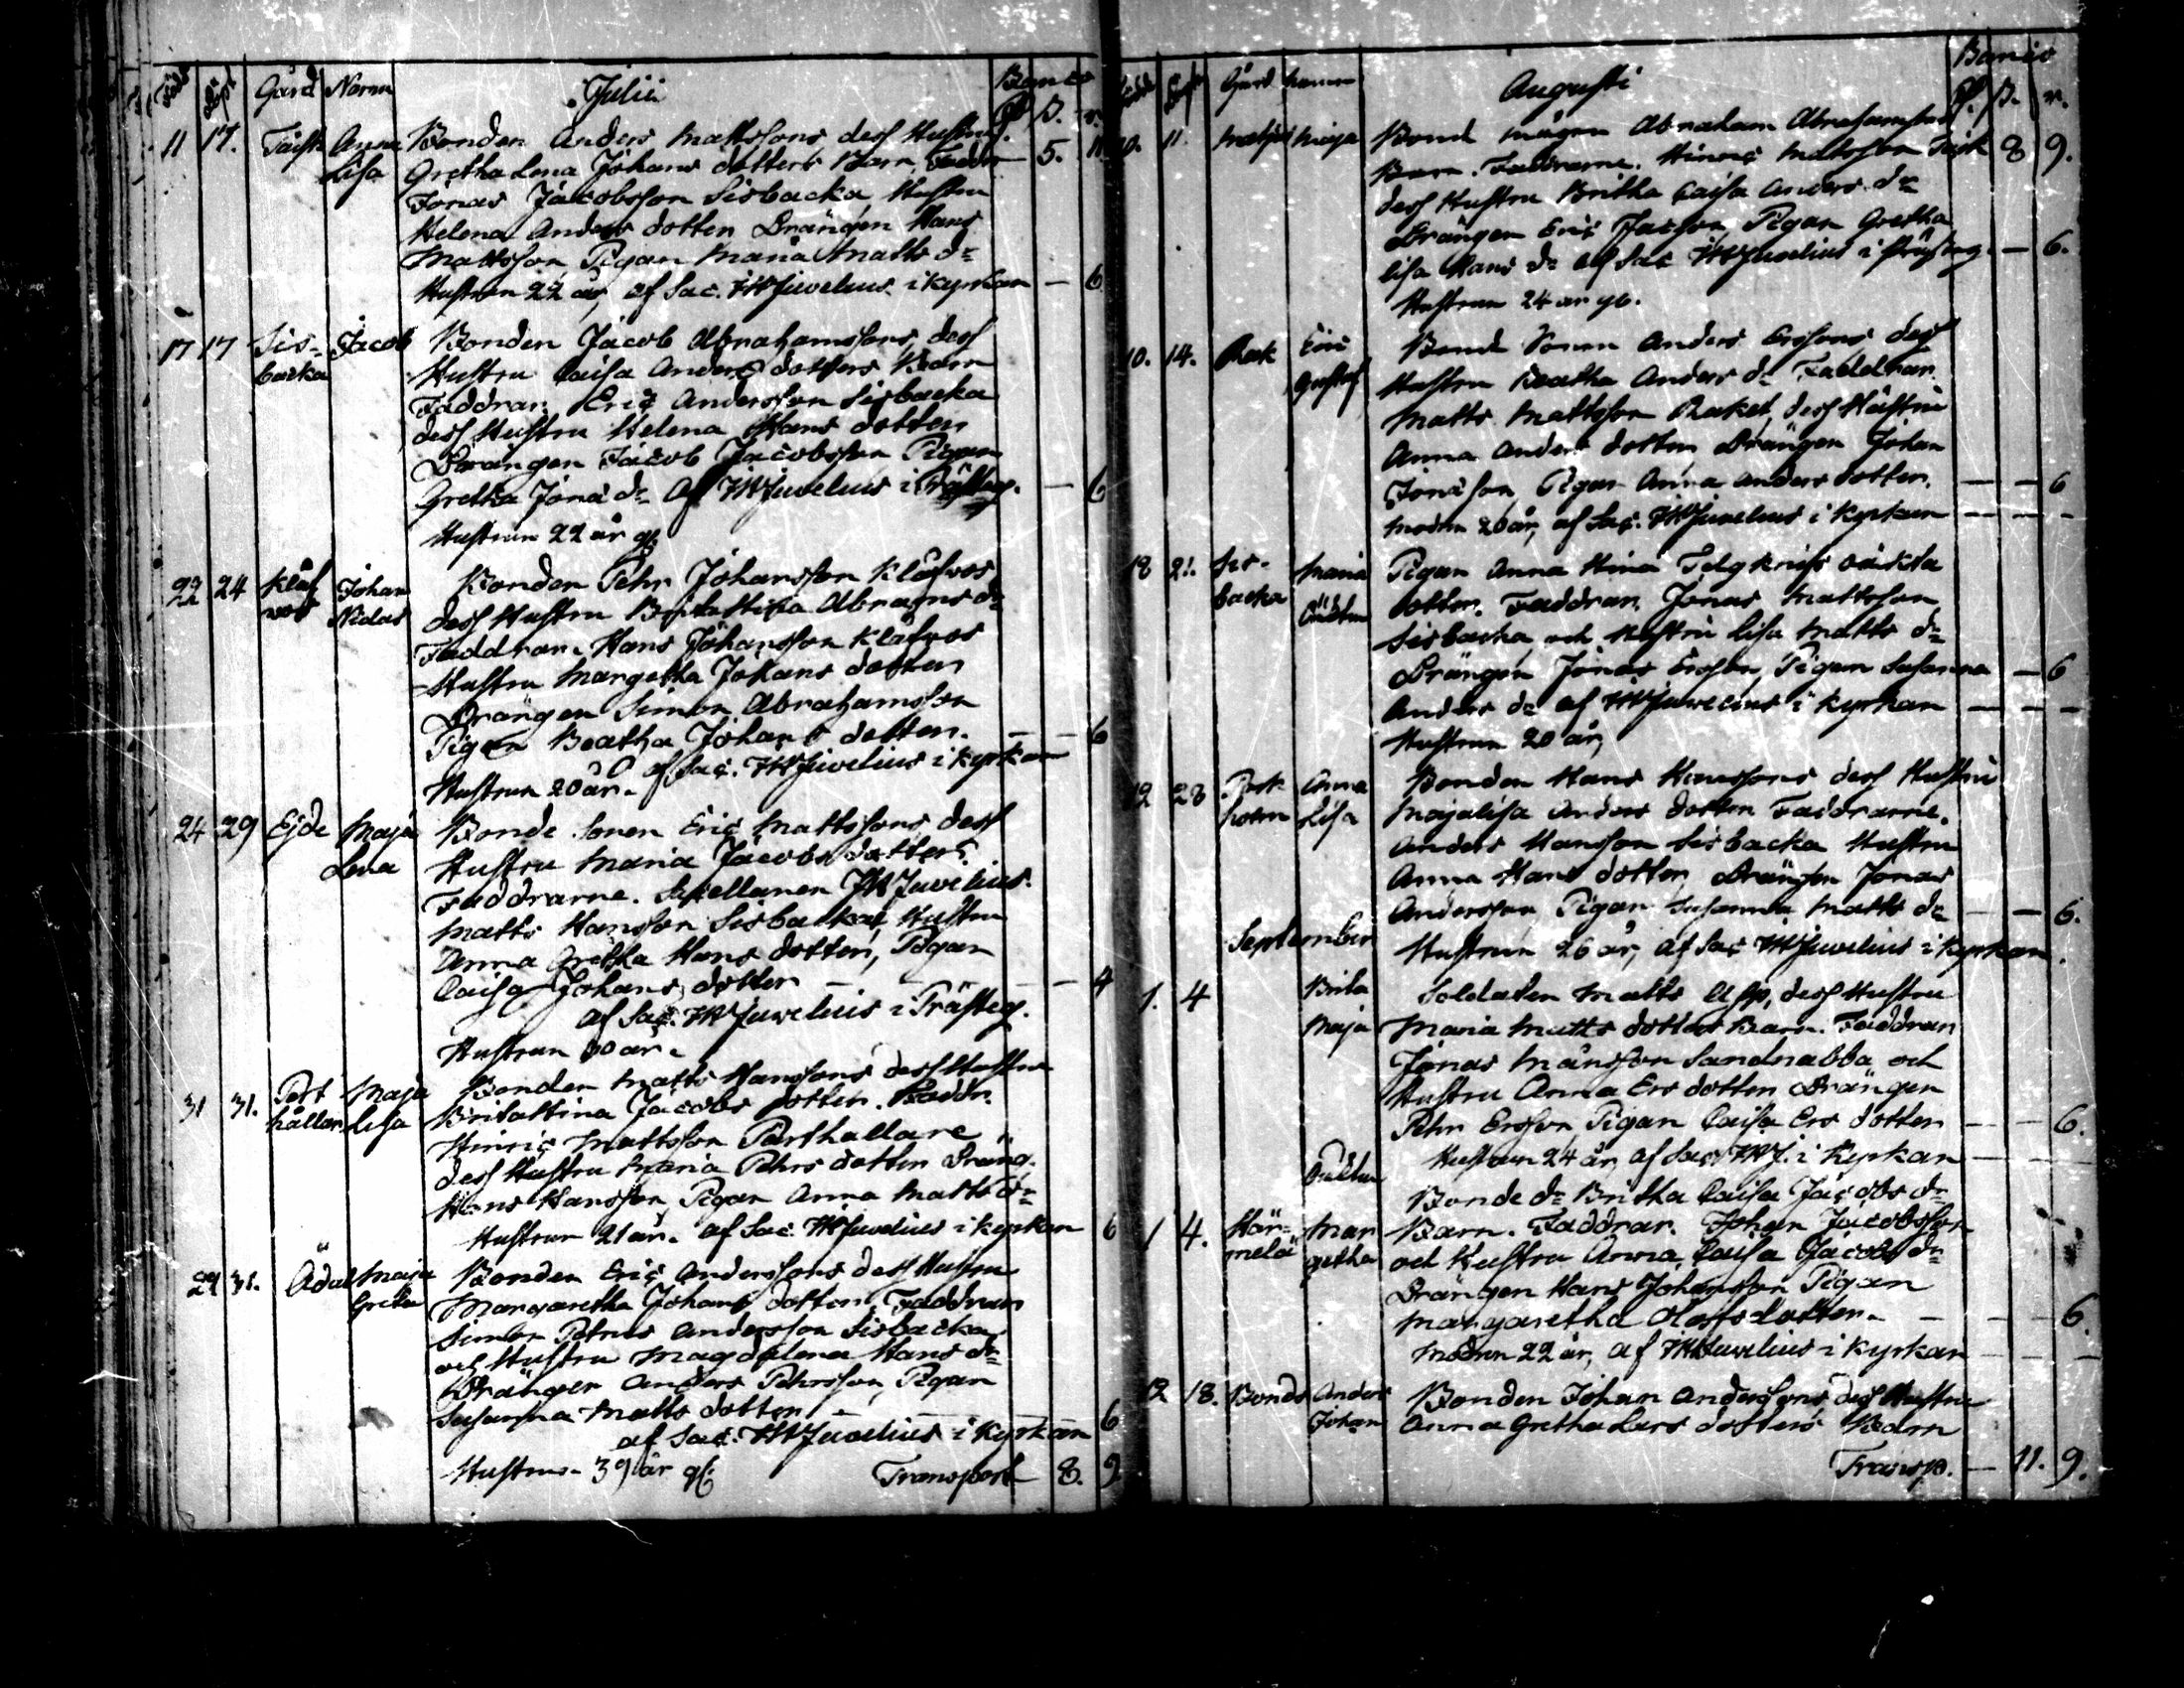 Född Döpt Gård Namn Julii Banco
R. ß. r.
11 17. Täist Anna Bonden Anders Mattssons, dess Hustrus
Lisa Gretha Lena Johans dotters Barn, Faddr 5. 11
Jonas Jacobsson Sisbacka, Hustru
Helena Anders dotter Drängen Hans
Mattsson, Pigan Maria Matts dr
Hustrun 22 år, af Sac. JWJuvelius i kyrkan — 6
17 17 Sis- Jacob Bonden Jacob Abrahamssons, dess
backa Hustru Caisa Anders dotters Barn
Faddrar. Eric Andersson Sisbacka
dess Hustru Helena Hans dotter
Drängen Jacob Jacobsson Pigan
Gretha Jona dr af JWJuvelius i Prästeg. — 6
Hustrun 22 år gl.
22 24 Klåf Johan Bonden Pehr Johansson Klåfvos
vos Niclas dess Hustru Brita Stina Abrams dr
Faddrar. Hans Johansson Klåfvos
Hustru Margetha Johans dotter
Drängen Simon Abrahamsson
Pigan Beatha Johans dotter. — — 6
Hustrun 20 år. af Sac. JWJuvelius i kyrkan
24 29 Ejde Maja Bonde Sonen Eric Mattssons, dess
Lena Hustru Maria Jacobs dotters.
Faddrarne. Sacellanen JWJuvelius.
Matts Hansson Sisbacka, Hustru
Anna Gretha Hans dotter, Pigan
Caisa Johans dotter — — — 4
af Sac. JWJuvelius i Prästeg.
Hustrun 30 år.
31 31. Post Maja Bonden Matts Hanssons dess Hustru
hållar Lisa Brita Stina Jacobs dotter. Faddr.
Hinric Mattsson Posthållare
dess Hustru Maria Pehrs dotter Dräng.
Hans Hansson, Pigan Anna Matts dr
Hustrun 21 år. af Sac. JWJuvelius i kyrkan 6
29 31. Ådal Maja Bonden Eric Anderssons dess Hustru
Greta Margaretha Johans dotter. Faddrar
Simon Petrus Andersson Sisbacka,
och Hustru Magdalena Hans dr
Drängen Anders Pehrsson, Pigan
Susanna Matts dotter — — — 6
af Sac. JWJuvelius i kyrkan
Hustrun 39 år gl. Transport 8. 9
Född Döpt Gård namn Augusti Banco
R. ß. r.
10. 11. Maja Bonde mågen Abraham Abrahamssons
Barn. Faddrarne. Hinric Mattsson Täist 8 9.
dess Hustru Britha Caisa Anders dr
Drängen Eric Jacsson, Pigan Gretha
Lisa Hans dr af Sac JWJuvelius i Prästeg. — 6.
Hustrun 24 år gl.
10. 14. Rask Eric Bonde Sonen Anders Erssons dess
Gustaf Hustru Beatha Anders dr Faddrar.
Matts Mattsson Rasket, dess Hustru
Anna Anders dotter Drängen Johan
Jonasson, Pigan Anna Anders dotter. — — 6
modren 20 år, af Sac. JWJuvelius i Kyrkan — — -
18 21. Sis- Maria Pigan Anna Stina oäkta
backa Oäkten dotter. Faddrar. Jonas Mattsson
Sisbacka, och Hustru Lisa Matts dr
Drängen Jonas Ersson, Pigan Susanna — 6
Anders dr af JWJuvelius i kyrkan — — -
Hustrun 20 år,
12 28 Anna Bonden Hans Hanssons dess Hustru
holm Lisa Maja Lisa Anders dotter Faddrarne.
Anders Hansson Sisbacka Hustru
Anna Hans dotter, Drängen Jonas
Andersson Pigan Susanna Matts dr — — 6.
September Hustrun 26 år, af Sac JWJuvelius i kyrkan.
1. 4 Brita Soldaten Matts Asp, dess Hustru
Maja Maria Matts dotters Barn. Faddrar
Jonas Månsson Sandnabba och
Hustru Anna Ers dotter Drängen
Pehr Ersson Pigan Caisa Ers dotter — — 6.
Hustrun 24 år, af Sac JWJ. i Kyrkan — —
Oäkten Bonde dr Britha Caisa Jacobs dr
1 4. Här- Mar Barn. Faddrar. Johan Jacobsson
melä getha och Hustru Anna Caisa Jacobs dr
Drängen Hans Johansson Pigan
Margaretha Olofs dotter. — — — 6.
Modren 22 år, af JWJuvelius i kyrkan — — -
12 18. Bonds Anders Bonden Johan Anderssons dess Hustru
Johan Anna Gretha Lars dotters Barn
Transp. — 11. 9.